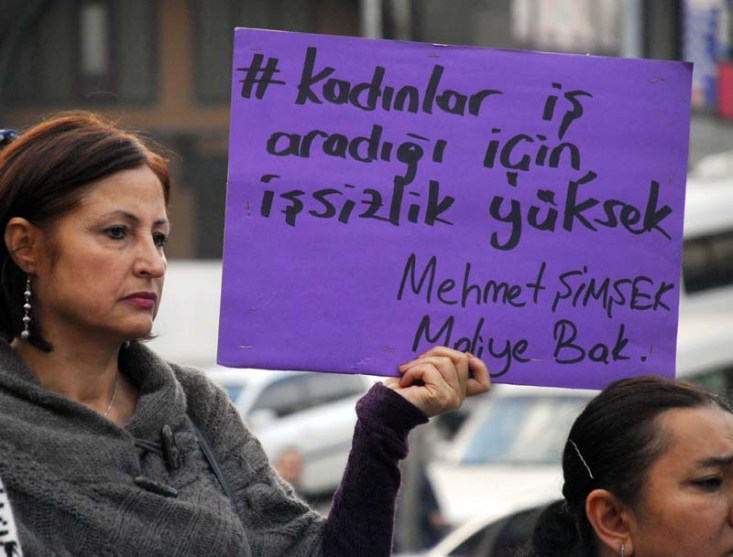 #Kadınlar iş
aradığı için,
işsizlik yüksek
Mehmet ŞİMŞEK
Maliye Bak.